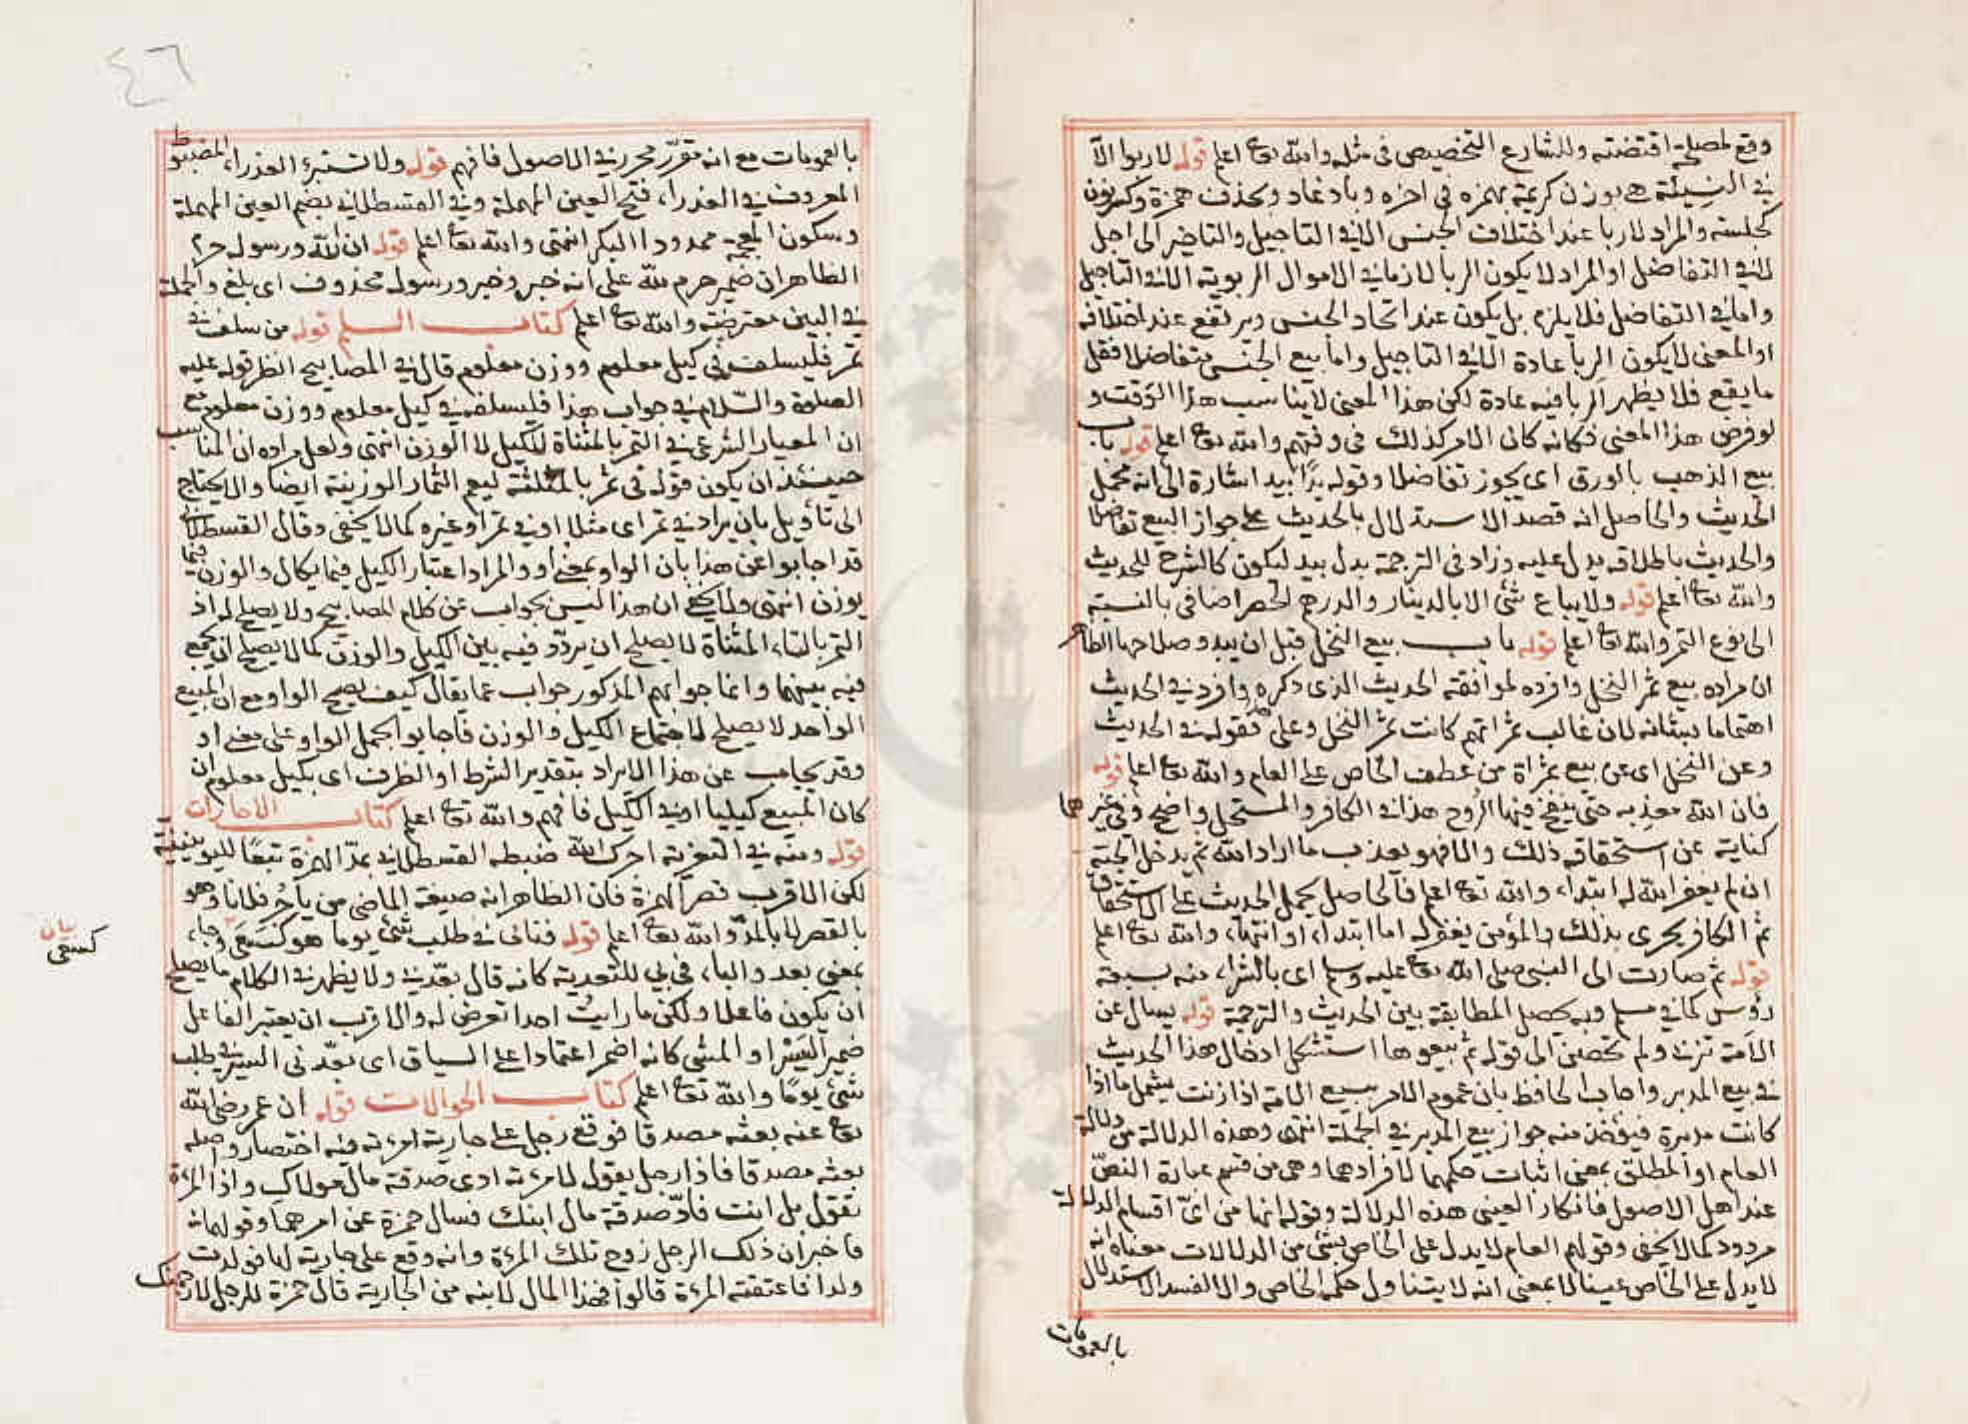 وقع لمصلحة اقتضته وللشارع التخصيص في مثله والله تعا اعلم قوله لا ربوا الا
في النسيئة هي بوزن كريمة بهمزه في اخره وبادغام وبحذف همزة وكسر نون
كجلسة والمراد لا ربا عند اختلاف الجنس الا في التاجيل والتاخير الى اجل
لا في التفاضل او المراد لا يكون الربا لازما في الاموال الربوية الا في التاجيل
واما في التفاضل فلا يلزم بل يكون عند اتحاد الجنس ويرتفع عند اختلافه
او المعنى لا يكون الربا عادة الا في التاجيل واما بيع الجنس متفاضلا فقل
ما يقع فلا يظهر الربا فيه عادة لكن هذا المعنى لا يناسب هذا الوقت و
لو فرض هذا المعنى فكانه كان الامر كذلك في وقتهم والله تعا اعلم قوله باب
بيع الذهب بالورق اى يجوز تفاضلا وقوله يدا بيد اشارة الى انه محمل
الحديث والحاصل انه قصد الاستدلال بالحديث على جواز البيع تفاضلا
والحديث باطلاقه يدل عليه وزاد في الترجمة يدا بيد ليكون كالشرح للحديث
والله تعا اعلم قوله ولا يباع شئ الا بالدينار والدرهم الحصر اضافي بالنسبة
الى نوع التمر والله تعا اعلم قوله باب بيع النخل قبل ان يبدو صلاحها الظاهر
ان مراده بيع ثمر النخل وافرده لموافقة الحديث الذى ذكره وافرد في الحديث
اهتماما بشانه لان غالب ثمراتهم كانت ثمر النخل وعلى هذا فقوله في الحديث
وعن النخل اى عن بيع ثمراة من عطف الخاص على العام والله تعا اعلم قوله
فان الله معذبه حتى ينفخ فيها الروح هذا في الكافر والمستحل واضح وفي غيرهما
كناية عن استحقاقه ذلك والا فهو يعذب ما اراد الله ثم يدخل الجنة
ان لم يغفر الله له ابتداء والله تعا اعلم فالحاصل يحمل الحديث على الاستحقاق
ثم الكافر يجرى بذلك والمؤمن يغفر له اما ابتداء او انتهاء والله تعا اعلم
قوله ثم صارت الى النبي صلى الله تعا عليه وسلم اى بالشراء منه بسبعة
رؤس كما في مسلم وبه يحصل المطابقة بين الحديث والترجمة قوله يسال عن
الامة تزنى ولم تحصن الى قوله ثم بيعوها استشكل ادخال هذا الحديث
في بيع المدبر واجاب الحافظ بان عموم الامر ببيع الامة اذا زنت يشمل ما اذا
كانت مدبرة فيؤخذ منه جواز بيع المدبر في الجملة انتهى وهذه الدلالة من دلالة
العام او المطلق بمعنى اثبات حكمهما لافرادهما وهى من قسم عبارة النص
عند اهل الاصول فانكار العينى هذه الدلالة وقوله انها من اى اقسام الدلالة
مردود كما لا يخفى وقولهم العام لا يدل على الخاص بشئ من الدلالات معناه انه
لا يدل على الخاص عينا لا بمعنى انه لا يتناول حكمه الخاص والا لفسد الاستدلال
بالعمومات
٤٦
بالعمومات مع انه مقرر محرر في الاصول فافهم قوله ولا تستبرئ العذراء المضبوط
المعروف في العذراء فتح العين المهملة وفي القسطلاني بضم العين المهملة
وسكون المعجمة ممدودا البكر انتهى والله تعا اعلم قوله ان الله ورسوله حرم
الظاهر ان ضمير حرم لله على انه خبر وخبر ورسوله محذوف اى بلغ والجملة
في البين معترضة والله تعا اعلم كتاب السلم قوله من سلف في
تمر فليسلف في كيل معلوم ووزن معلوم قال في المصابيح انظر قوله عليه
الصلوة والسلام في جواب هذا فليسلف في كيل معلوم ووزن معلوم مع
ان المعيار الشرعي في التمر بالمثناة الكيل لا الوزن انتهى ولعل مراده ان المناسب
حينئذ ان يكون قوله في ثمر بالمثلثة ليعم الثمار الوزنية ايضا والا يحتاج
الى تأويل بان يراد في تمر اى مثلا او في تمر او غيره كما لا يخفى وقال القسطلاني
قد اجابوا عن هذا بان الواو بمعنى او والمراد اعتبار الكيل فيما يكال والوزن فيما
يوزن انتهى ولا يخفى ان هذا ليس بجواب عن كلام المصابيح ولا يصلح له اذ
التمر بالتاء المثناة لا يصلح ان يردد فيه بين الكيل والوزن كما لا يصلح ان يجمع
فيه بينهما وانما جوابهم المذكور جواب عما يقال كيف يصح الواو مع ان المبيع
الواحد لا يصلح لاجتماع الكيل والوزن فاجابوا بحمل الواو على معنى او
وقد يجاب عن هذا الايراد بتقدير الشرط او الظرف اى بكيل معلوم ان
كان المبيع كيليا او في الكيل فافهم والله تعا اعلم كتاب الاجارات
قوله ومنه في التعزية اجرك الله ضبطه القسطلاني بمد الهمزة تبعا لليونينية
لكن الاقرب قصر الهمزة فان الظاهر انه صيغة الماضي من ياجر فلانا وهو
بالقصر لا بالمد والله تعا اعلم قوله فنأى في طلب شئ يوما هو كسعى وجاء
بيان
كسعى
بمعنى بعد والباء في بي للتعدية كانه قال بعدني ولا يظهر في الكلام ما يصلح
ان يكون فاعلا ولكن ما رايت احدا تعرض له والاقرب ان يعتبر الفاعل
ضمير السير او المشى كانه اضمر اعتمادا على السياق اى بعدنى السير في طلب
شئ يوما والله تعا اعلم كتاب الحوالات قوله ان عمر رضى الله
تعا عنه بعثه مصدقا فوقع رجل على جارية امرءته فيه اختصار واصله
بعثه مصدقا فاذا رجل يقول لامرءته ادى صدقة مال مولاك واذا المرءة
تقول بل انت فأد صدقة مال ابنك فسال حمزة عن امرهما وقولهما
فاخبر ان ذلك الرجل زوج تلك المرءة وانه وقع على جارية لها فولدت
ولدا فاعتقته المرءة قالوا فهذا المال لابنه من الجارية قال حمزة للرجل لارجمنك